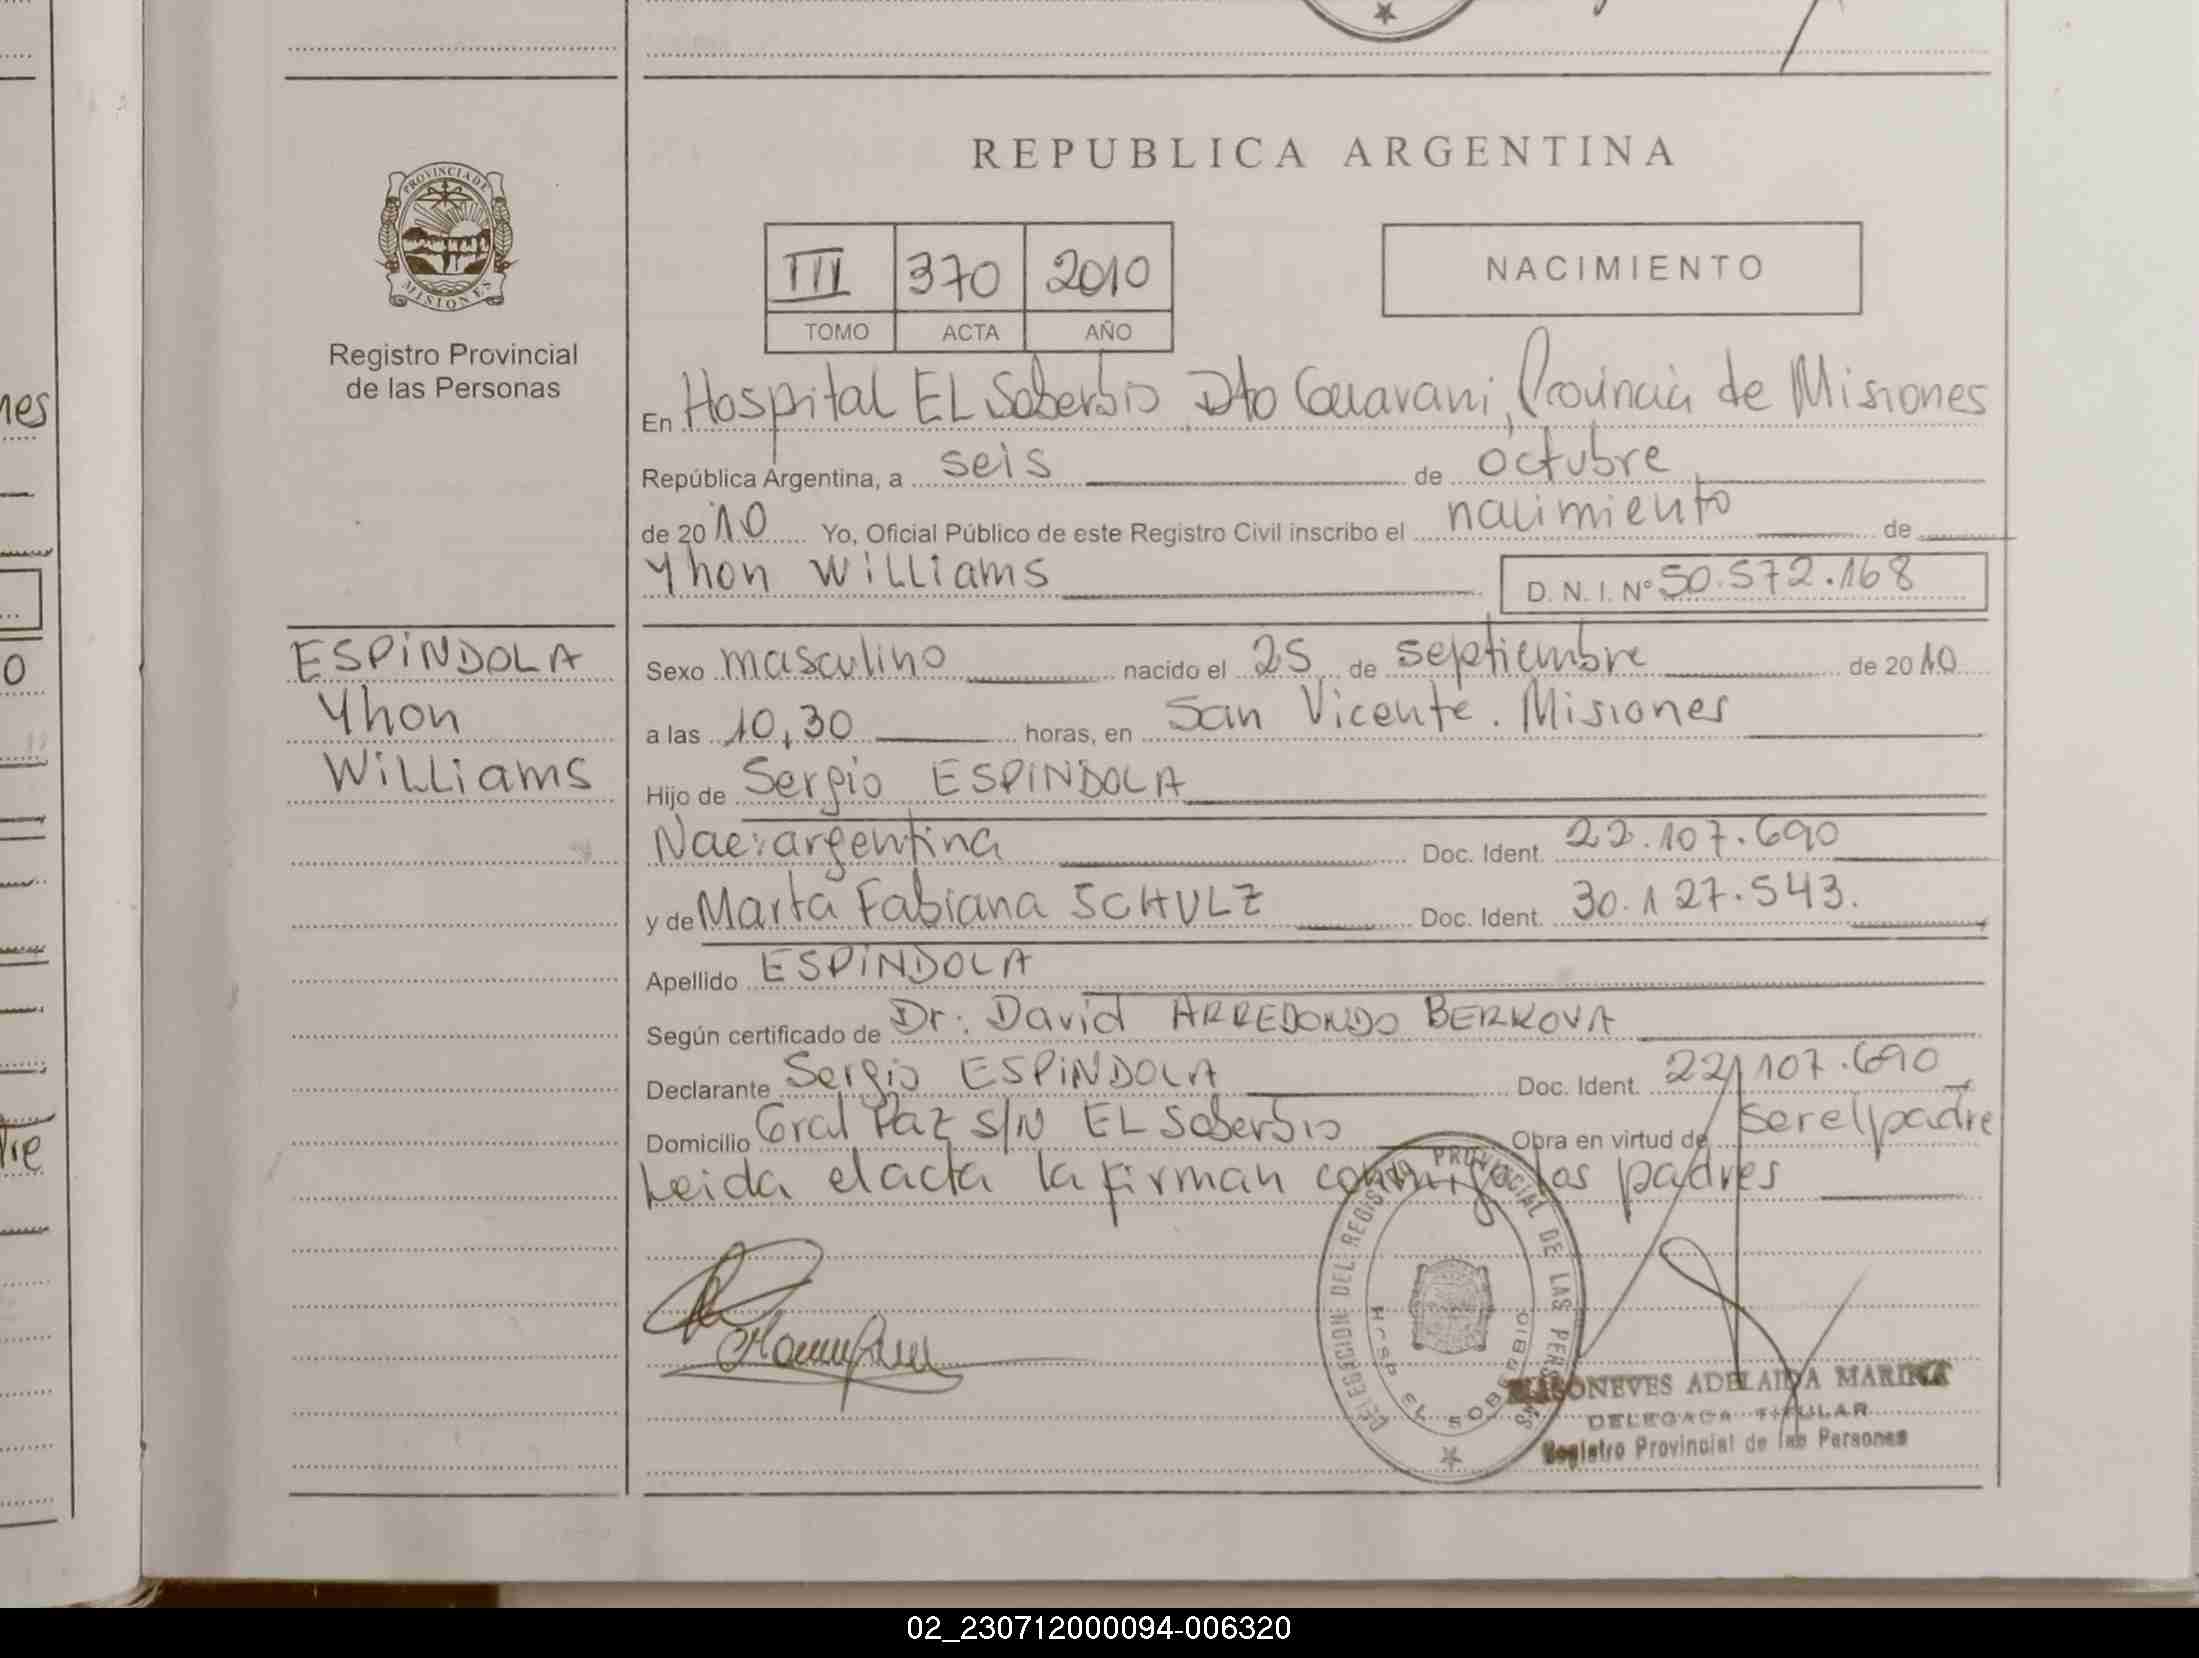 REPUBLICA ARGENTINA
PROVINCIA DE
MISIONES
Registro Provincial
de las Personas
III 370 2010
TOMO ACTA AÑO
NACIMIENTO
En Hospital EL Soberbio Dto Guarani, Provincia de Misiones
República Argentina, a seis de octubre
de 2010 Yo, Oficial Público de este Registro Civil inscribo el nacimiento de
Yhon Williams D. N. I. Nº 50.572.168
ESPINDOLA
Yhon
Williams
Sexo masculino nacido el 25 de septiembre de 2010
a las 10,30 horas, en San Vicente. Misiones
Hijo de Sergio ESPINDOLA
Nac: argentina Doc. Ident. 22.107.690
y de Marta Fabiana SCHULZ Doc. Ident. 30.127.543.
Apellido ESPINDOLA
Según certificado de Dr. David ARREDONDO BERKOVA
Declarante Sergio ESPINDOLA Doc. Ident. 22.107.690
Domicilio Gral Paz S/N EL Soberbio Obra en virtud de ser el padre
Leida el acta la firman conmigo los padres
DELEGACION DEL REGISTRO PROVINCIAL DE LAS PERSONAS
HOSP EL SOBERBIO
ADELAIDA MARINA
DELEGADA TITULAR
Registro Provincial de las Personas
nes
0
tre
02_230712000094-006320